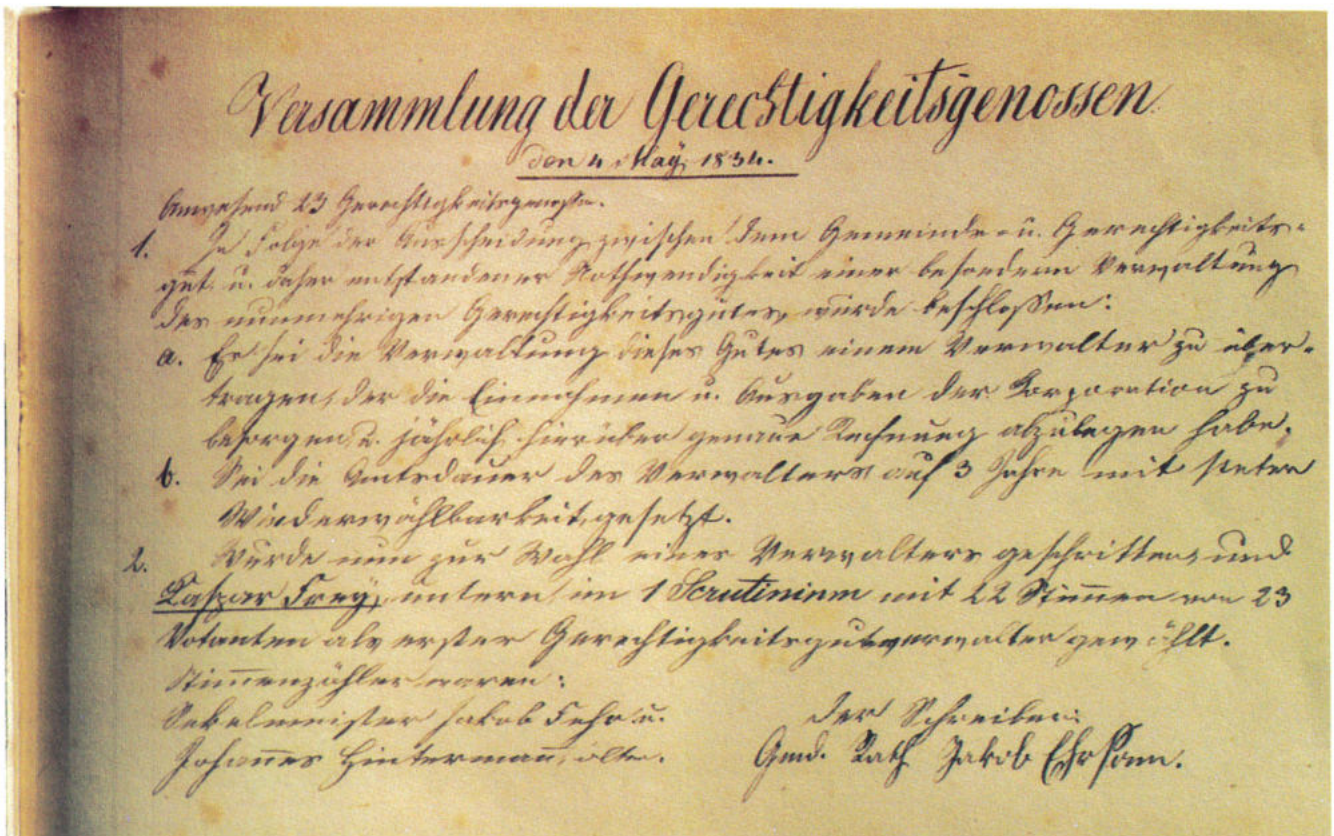 Versammlung der Gerechtigkeitsgenossen.
den 4 May 1834.
Anwesend 23 Gerechtigkeitsgenossen.
1. In Folge der Ausscheidung zwischen dem Gemeinde- u. Gerechtigkeits-
gut u. daher entstandener Nothwendigkeit einer besondern Verwaltung
des nunmehrigen Gerechtigkeitsgutes, wurde beschlossen:
a. Es sei die Verwaltung dieses Gutes einem Verwalter zu über-
tragen, der die Einnahmen u. Ausgaben der Korporation zu
besorgen, u. jährlich hierüber genaue Rechnung abzulegen habe.
b. Sei die Amtsdauer des Verwalters auf 3 Jahre mit steter
Wiederwählbarkeit, gesetzt.
2. Wurde nun zur Wahl eines Verwalters geschritten, und
Kaspar Frey, im 1 Scrutinium mit 22 Stimmen von 23
Votanten als erster Gerechtigkeitsgutverwalter gewählt.
Stimmenzähler waren:
Sekelmeister Jakob Fehr u.
Johannes Hintermann, älter.
Der Schreiber:
Gmd. Rath Jakob Ehrsam.